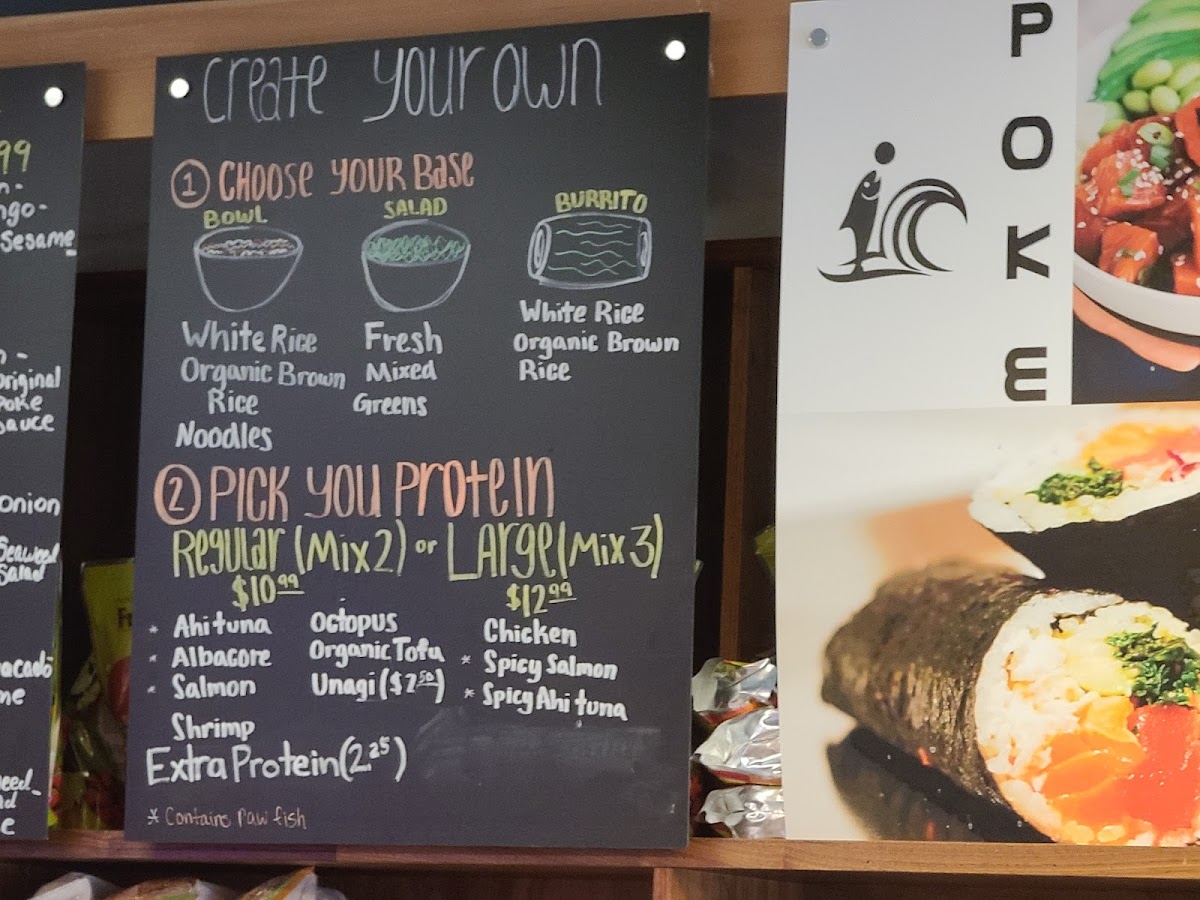 99
n-
ngo-
Sesame
n-
Original
Poke
Sauce
Onion
Seaweed
Salad
vacado
me
weed
e
Create Your Own
1 Choose Your Base
Bowl
White Rice
Organic Brown
Rice
Noodles
Salad
Fresh
Mixed
Greens
Burrito
White Rice
Organic Brown
Rice
2 Pick You Protein
Regular (Mix 2) or Large (Mix 3)
$10.99 $12.99
* Ahi tuna
* Albacore
* Salmon
Shrimp
Octopus
Organic Tofu
Unagi ($2.50)
Chicken
* Spicy Salmon
* Spicy Ahi tuna
Extra Protein (2.25)
* Contains raw fish
POKE